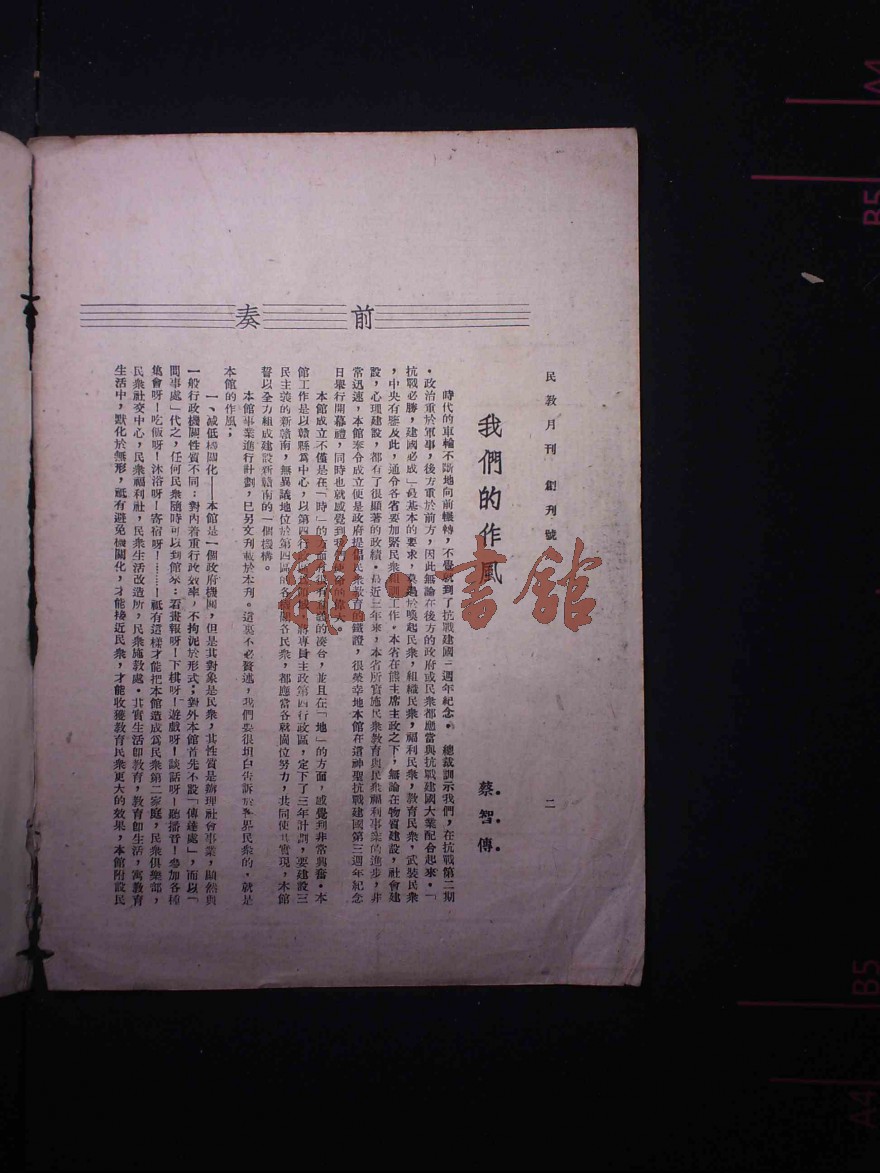 民教月刊 創刊號
二
前奏
我們的作風
蔡智傳
時代的車輪不斷地向前機轉，不覺就到了抗戰建國三週年紀念。 總裁訓示我們，在抗戰第二期
，政治重於軍事，後方重於前方，因此無論在後方的政府或民衆都應當與抗戰建國大業配合起來。「
抗戰必勝，建國必成」最基本的要求，莫過於喚起民衆，組織民衆，福利民衆，教育民衆，武裝民衆
，中央有鑒及此，通令各省要加緊民衆組訓工作。本省在熊主席主政之下，無論在物質建設，社會建
設，心理建設，都有了很顯著的政績。最近三年來，本省所實施民衆教育與民衆福利事業的進步，非
常迅速，本館奉令成立便是政府提倡民衆教育的鐵證，很榮幸地本館在這神聖抗戰建國第三週年紀念
日舉行開幕禮，同時也就感覺到我們使命的偉大。
本館成立不僅是在「時」的方面，很有意義的湊合，並且在「地」的方面，感覺到非常興奮。本
館工作是以贛縣爲中心，以第四行政區 專員主政第四行政區，定下了三年計劃，要建設三
民主義的新贛南，無異議地位於第四區的各機關各民衆，都應當各就崗位努力，共同使其實現，本館
誓以全力組成建設新贛南的一個機構。
本館事業進行計劃，已另文刊載於本刊。這裏不必贅述，我們要很坦白告訴於各界民衆的，就是
本館的作風；
一、減低機關化——本館是一個政府機關，但是其對象是民衆，其性質是辦理社會事業，顯然與
一般行政機關性質不同；對內着重行政效率，不拘泥於形式；對外本館首先不設「傳達處」，而以「
問事處」代之，任何民衆隨時可以到館來：看畫報呀！下棋呀！遊戲呀！談話呀！聽播音！參加各種
集會呀！吃飯呀！沐浴呀！寄宿呀！……！祗有這樣才能把本館造成爲民衆第二家庭，民衆俱樂部，
民衆社交中心，民衆福利社，民衆生活改造所，民衆施教處。其實生活卽教育，教育卽生活，寓教育
生活中，默化於無形，祗有避免機關化，才能接近民衆，才能收獲教育民衆更大的效果，本館附設民
龍·書館
A4
B5
B5
A4